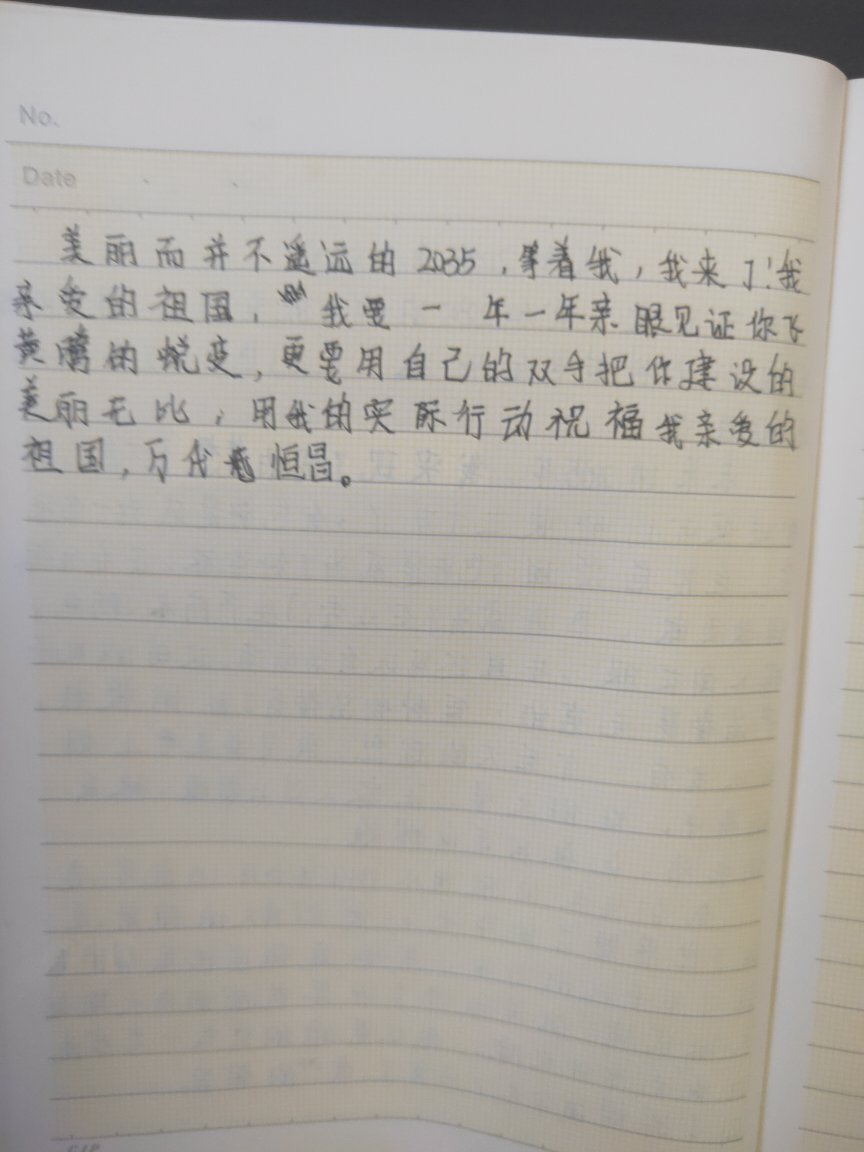 No.
Date
美丽而并不遥远的2035，等着我，我来了！我
亲爱的祖国，我要一年一年亲眼见证你飞
黄腾的蜕变，更要用自己的双手把你建设的
美丽无比，用我的实际行动祝福我亲爱的
祖国，万代恒昌。